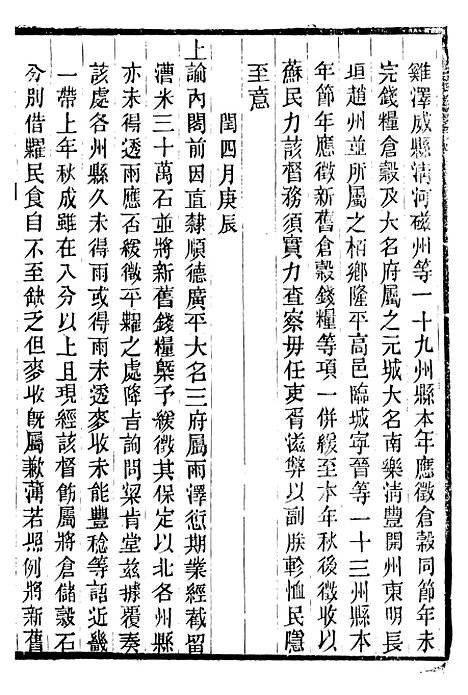 雞澤威縣淸河磁州等一十九州縣本年應徵倉穀同節年未
完錢糧倉穀及大名府屬之元城大名南樂淸豐開州東明長
垣趙州並所屬之栢鄉隆平高邑臨城寧晉等一十三州縣本
年節年應徵新舊倉穀錢糧等項一併緩至本年秋後徵收以
蘇民力該督務須實力查察毋任吏胥滋弊以副朕軫恤民隱
至意
閏四月庚辰
上諭內閣前因直隸順德廣平大名三府屬雨澤愆期業經截留
漕米三十萬石並將新舊錢糧槩予緩徵其保定以北各州縣
亦未得透雨應否緩徵平糶之處降旨詢問梁肯堂茲據覆奏
該處各州縣久未得雨或得雨未透麥收未能豐稔等語近畿
一帶上年秋成雖在八分以上且現經該督飭屬將倉儲穀石
分別借糶民食自不至缺乏但麥收旣屬歉薄若照例將新舊